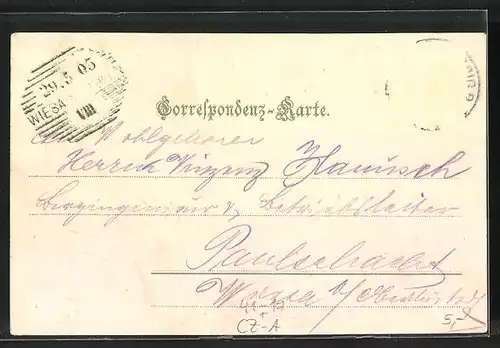 29.5.05
WIESA
VIII
Correspondenz-Karte.
Wohlgeboren
Herrn Vinzenz Hanusch
Bergingenieur & Betriebsleiter
Paulschacht
Wiesa b/
41-19
+
CZ-A
5,-